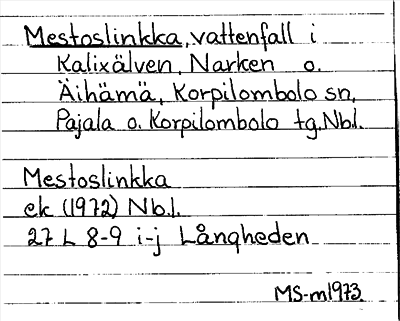 Mestoslinkka, vattenfall i
Kalixälven, Narken o.
Äihämä, Korpilombolo sn,
Pajala o. Korpilombolo tg. Nb.l.
Mestoslinkka
ek (1972) Nb.l.
27 L 8-9 i-j Långheden
MS-m1973